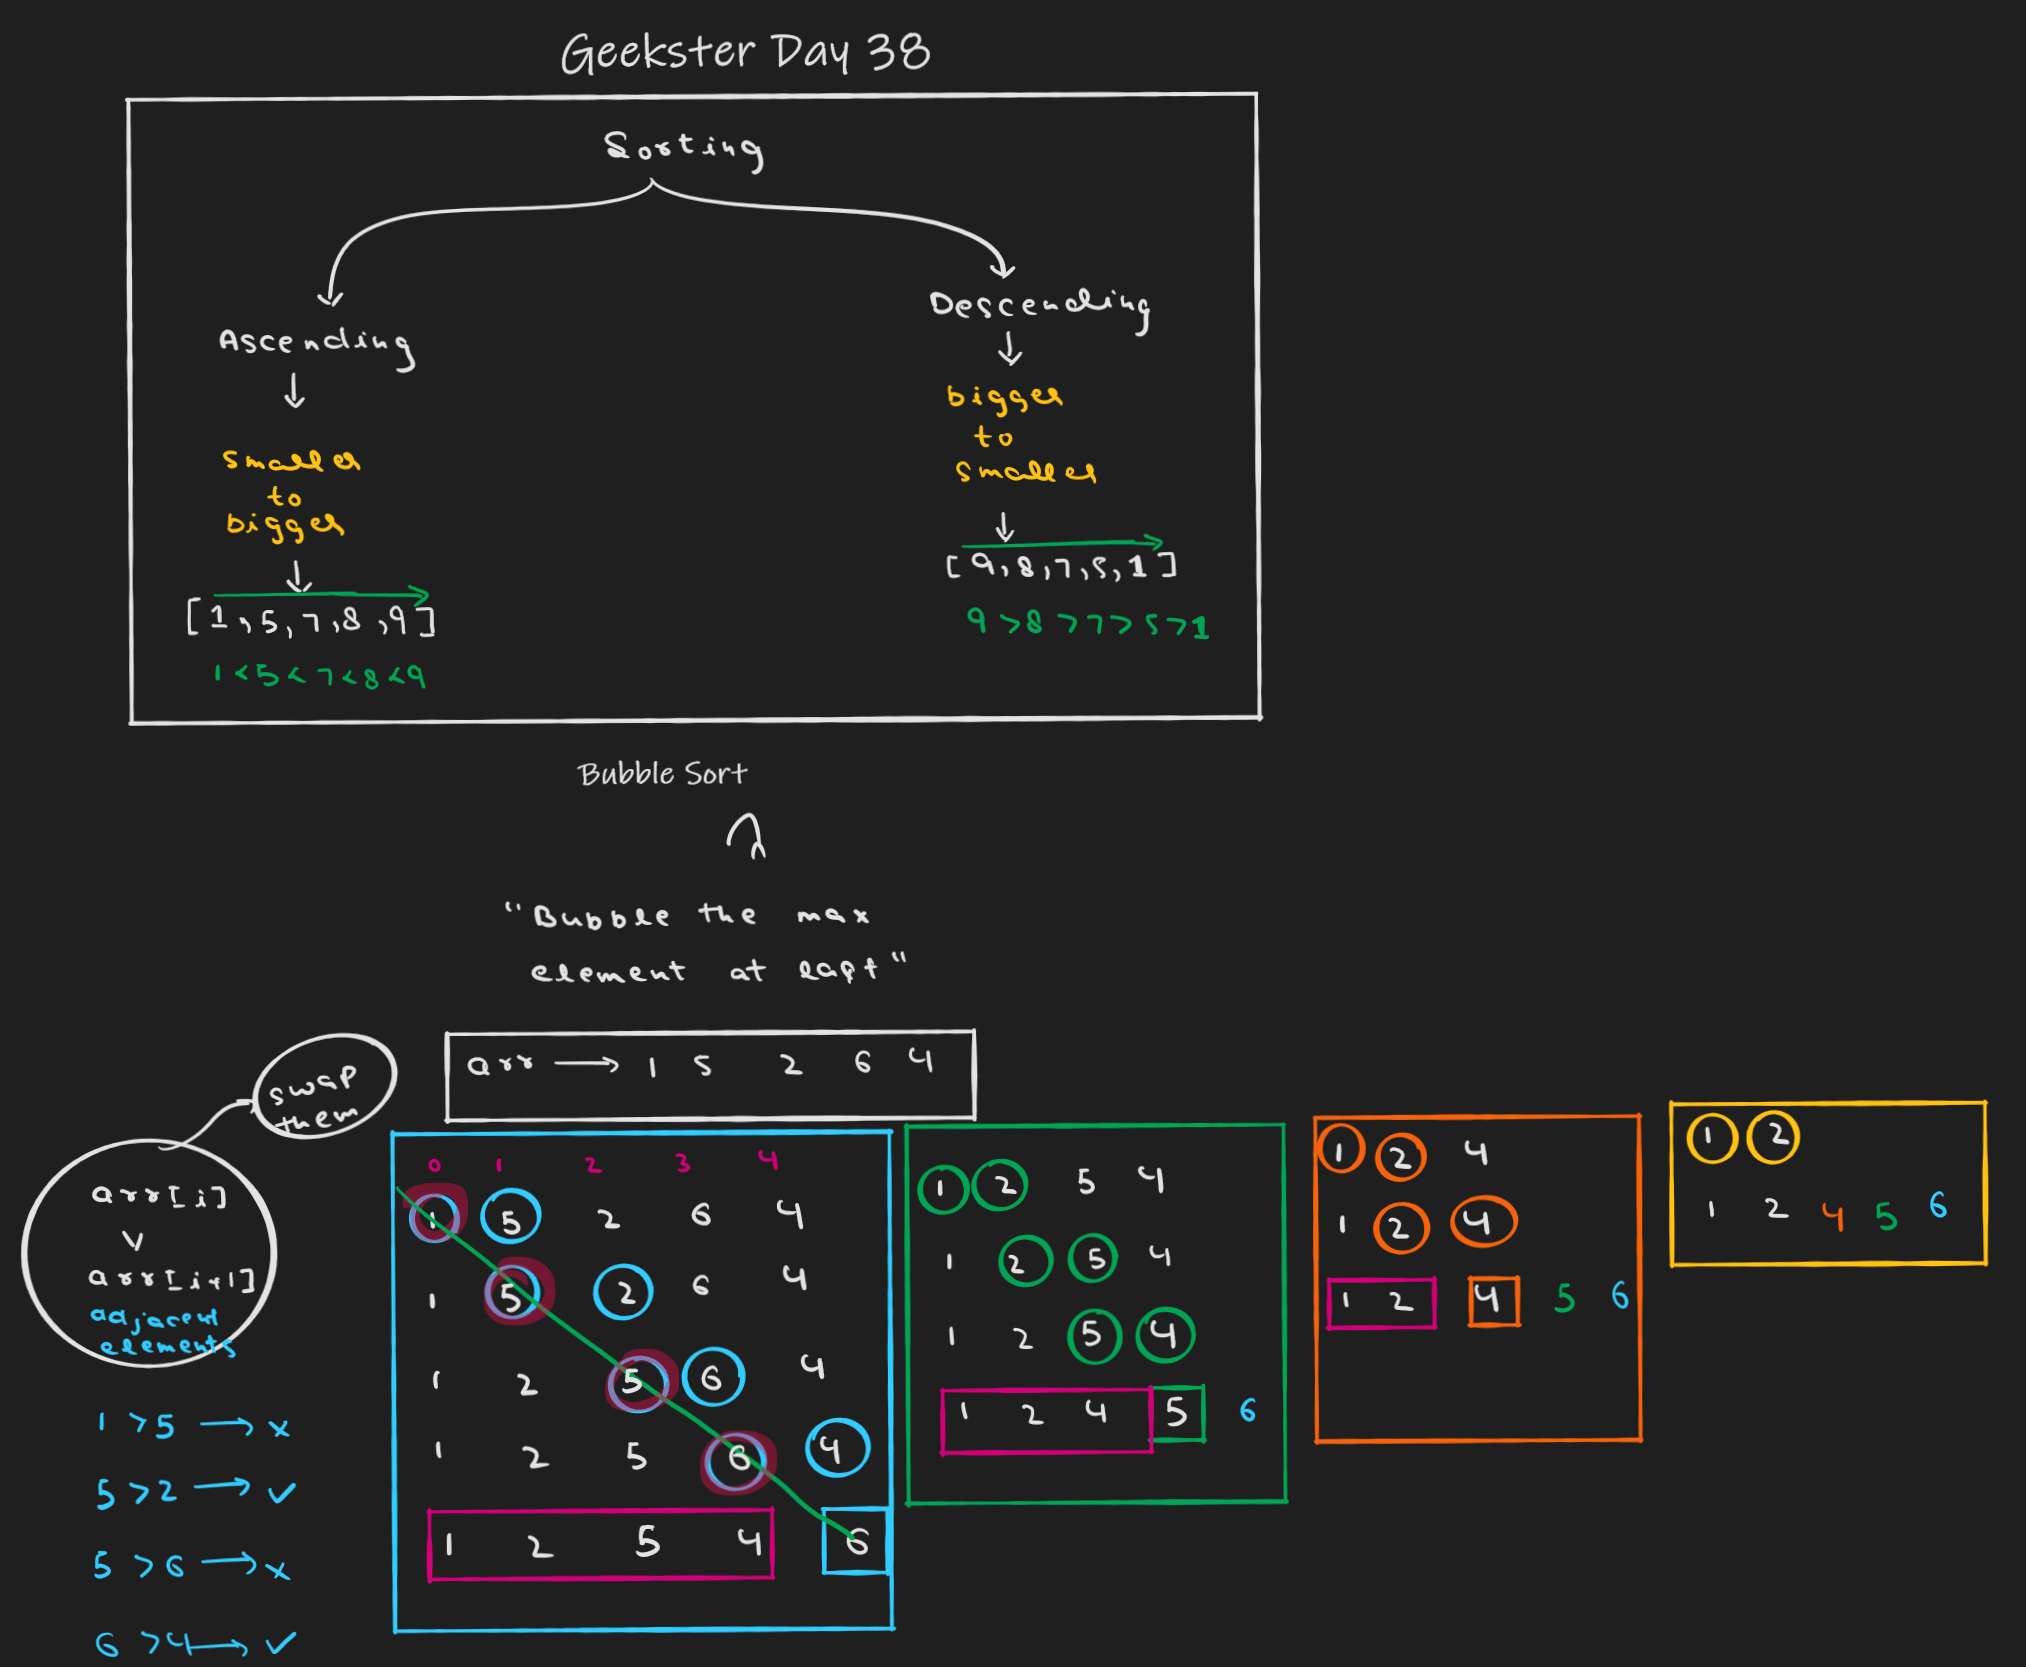 Geekster Day 38
Sorting
Ascending
↓
smaller
to
bigger
↓
[1,5,7,8,9]
1<5<7<8<9
Descending
↓
bigger
to
smaller
↓
[9,8,7,5,1]
9>8>7>5>1
Bubble Sort
"Bubble the max
element at last"
arr → 1 5 2 6 4
swap
them
arr[i]
>
arr[i+1]
adjacent
elements
1 > 5 → x
5 > 2 → ✓
5 > 6 → x
6 > 4 → ✓
0 1 2 3 4
1 5 2 6 4
1 5 2 6 4
1 2 5 6 4
1 2 5 6 4
1 2 5 4 6
1 2 5 4
1 2 5 4
1 2 5 4
1 2 4 5 6
1 2 4
1 2 4
1 2 4 5 6
1 2
1 2 4 5 6